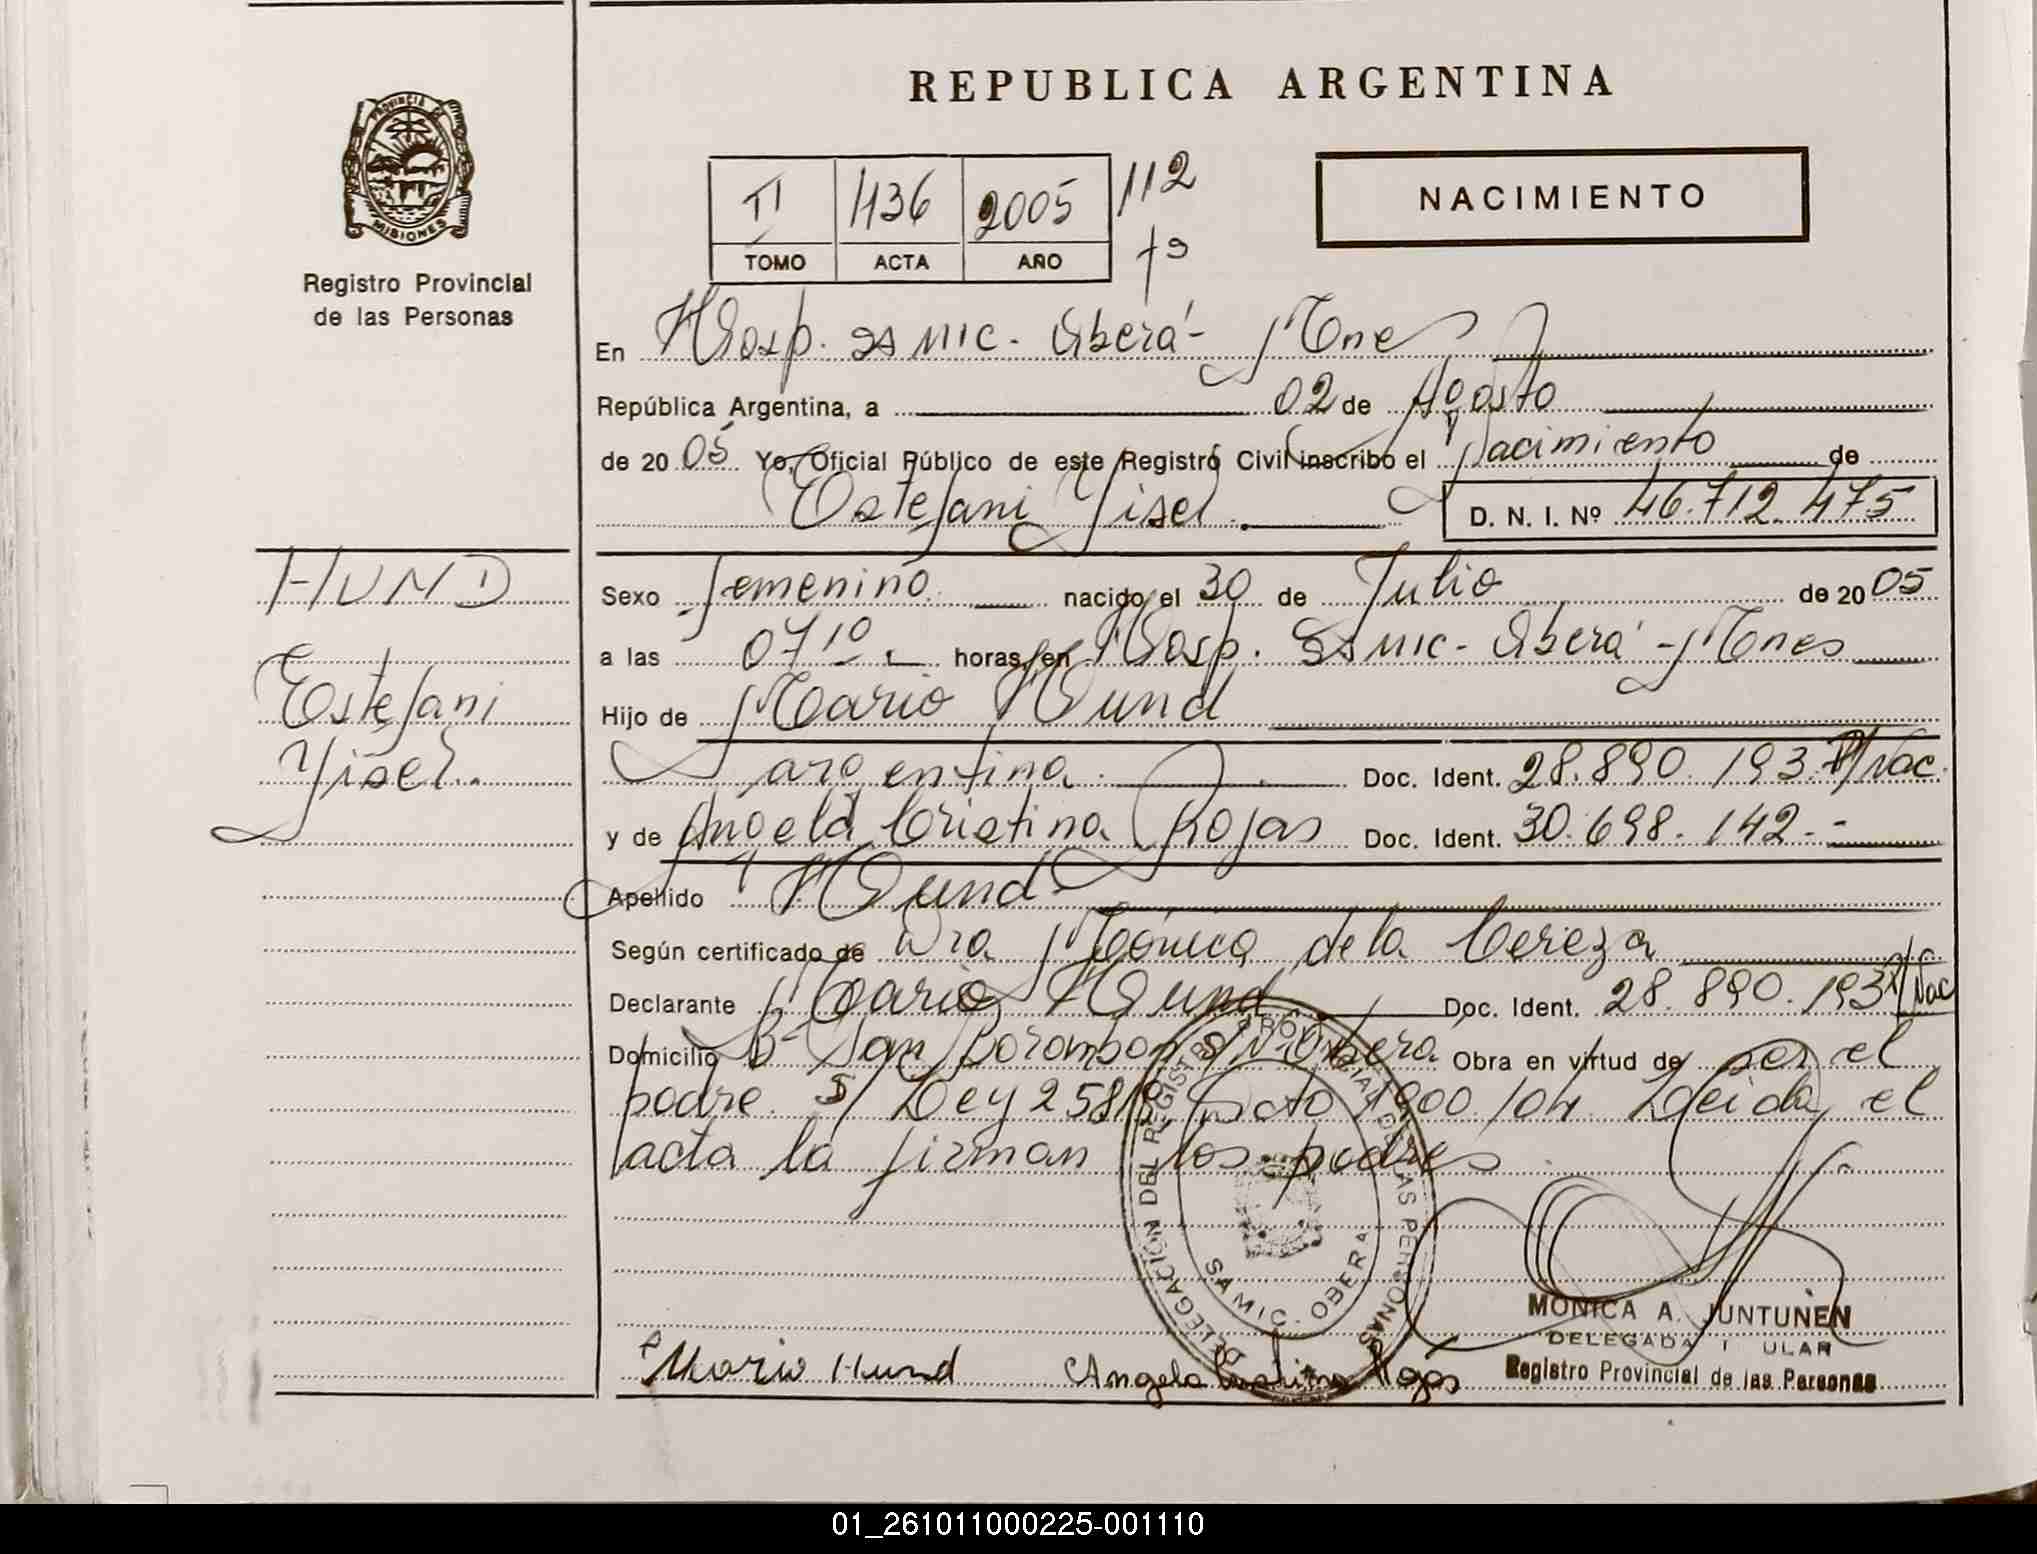 PROVINCIA DE
MISIONES
Registro Provincial
de las Personas
REPUBLICA ARGENTINA
NACIMIENTO
II 436 2005 112
TOMO ACTA AÑO fº
En Hosp. SAMIC - Oberá - Mnes
República Argentina, a 02 de Agosto
de 2005 Yo, Oficial Público de este Registro Civil inscribo el Nacimiento de
Estefani Yisel. D. N. I. Nº 46.712.475
HUND
Estefani
Yisel.
Sexo femenino nacido el 30 de Julio de 2005
a las 07 10 horas, en Hosp. SAMIC - Oberá - Mnes
Hijo de Mario Hund
argentina. Doc. Ident. 28.890.193 P/Nac.
y de Angela Cristina Rojas Doc. Ident. 30.698.142.-
Apellido Hund
Según certificado de Dra Mónica de la Cereza
Declarante Mario Hund Doc. Ident. 28.890.193 P/Nac
Domicilio Bº San Borombon S/Nº Obera Obra en virtud de ser el
padre. S/ Ley 25819 Dcto 1900/04. Leida el
acta la firman los padres.
DELEGACION DEL REGISTRO PROVINCIAL DE LAS PERSONAS
SAMIC. OBERA
Mario Hund Angela Cristina Rojas
MONICA A. JUNTUNEN
DELEGADA T ULAR
Registro Provincial de las Personas
01_261011000225-001110